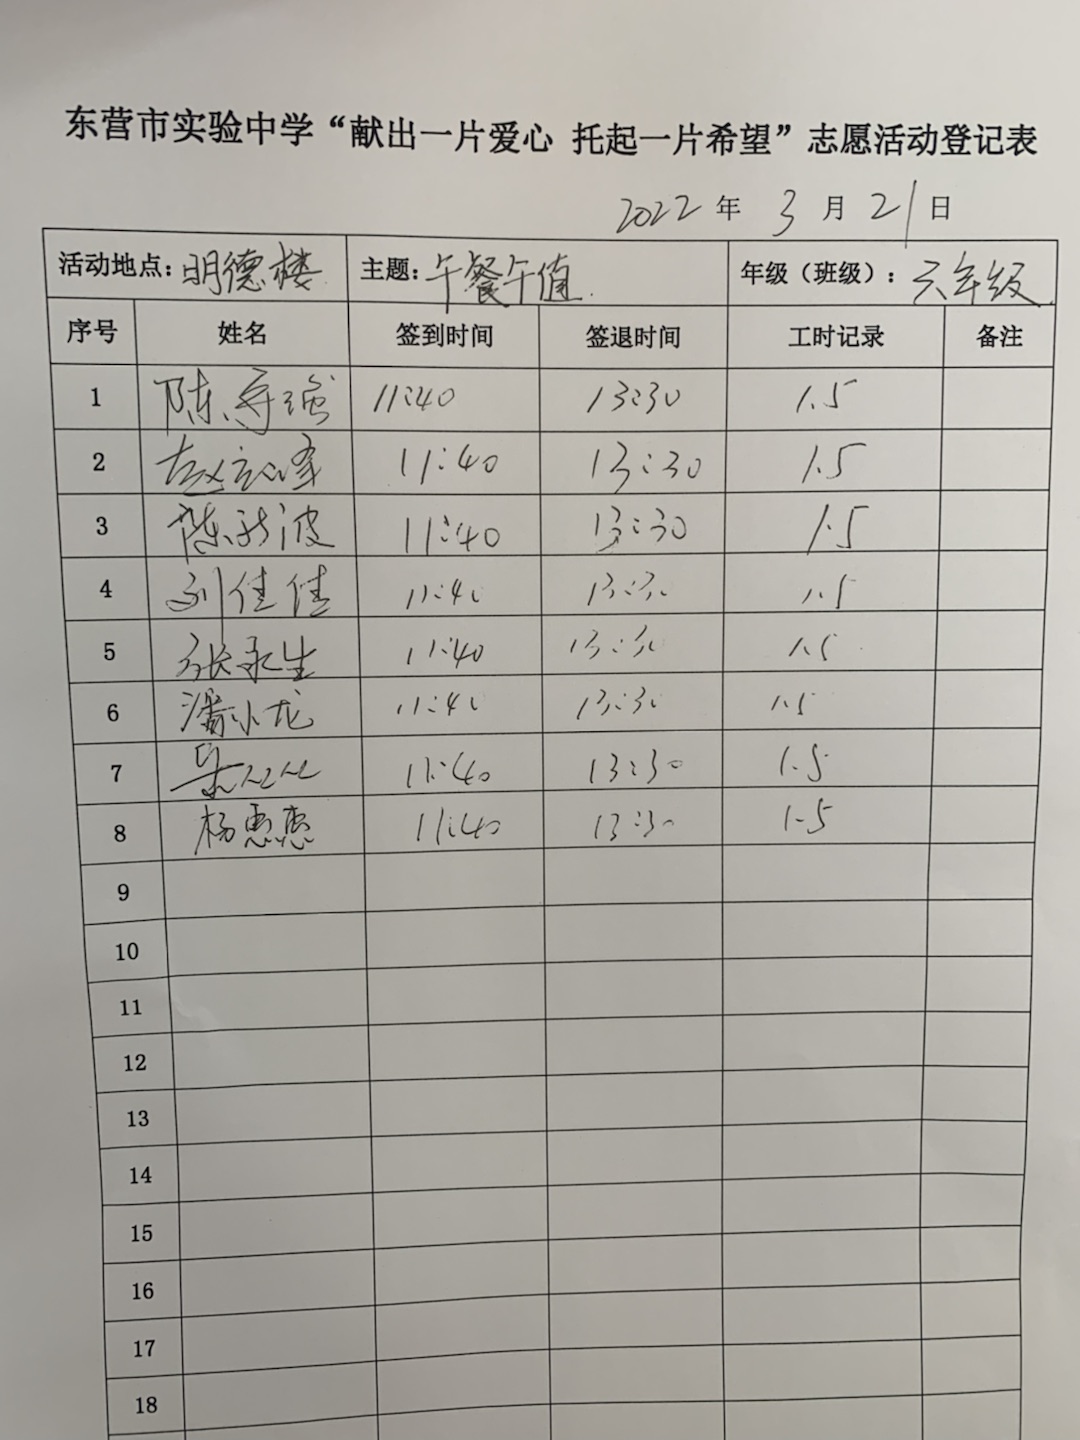 东营市实验中学“献出一片爱心 托起一片希望”志愿活动登记表
2022 年 3 月 21 日
活动地点：明德楼 主题：午餐午值 年级（班级）：六年级
序号 姓名 签到时间 签退时间 工时记录 备注
1 陈守强 11:40 13:30 1.5
2 赵 峰 11:40 13:30 1.5
3 陈新波 11:40 13:30 1.5
4 刘佳佳 11:40 13:30 1.5
5 张永生 11:40 13:30 1.5
6 潘小龙 11:40 13:30 1.5
7 11:40 13:30 1.5
8 杨惠惠 11:40 13:30 1.5
9
10
11
12
13
14
15
16
17
18